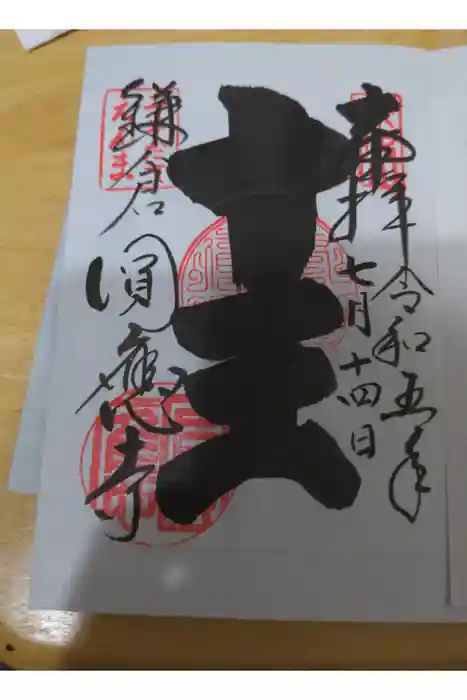 奉拝
令和五年
七月十四日
十王
鎌倉 圓應寺